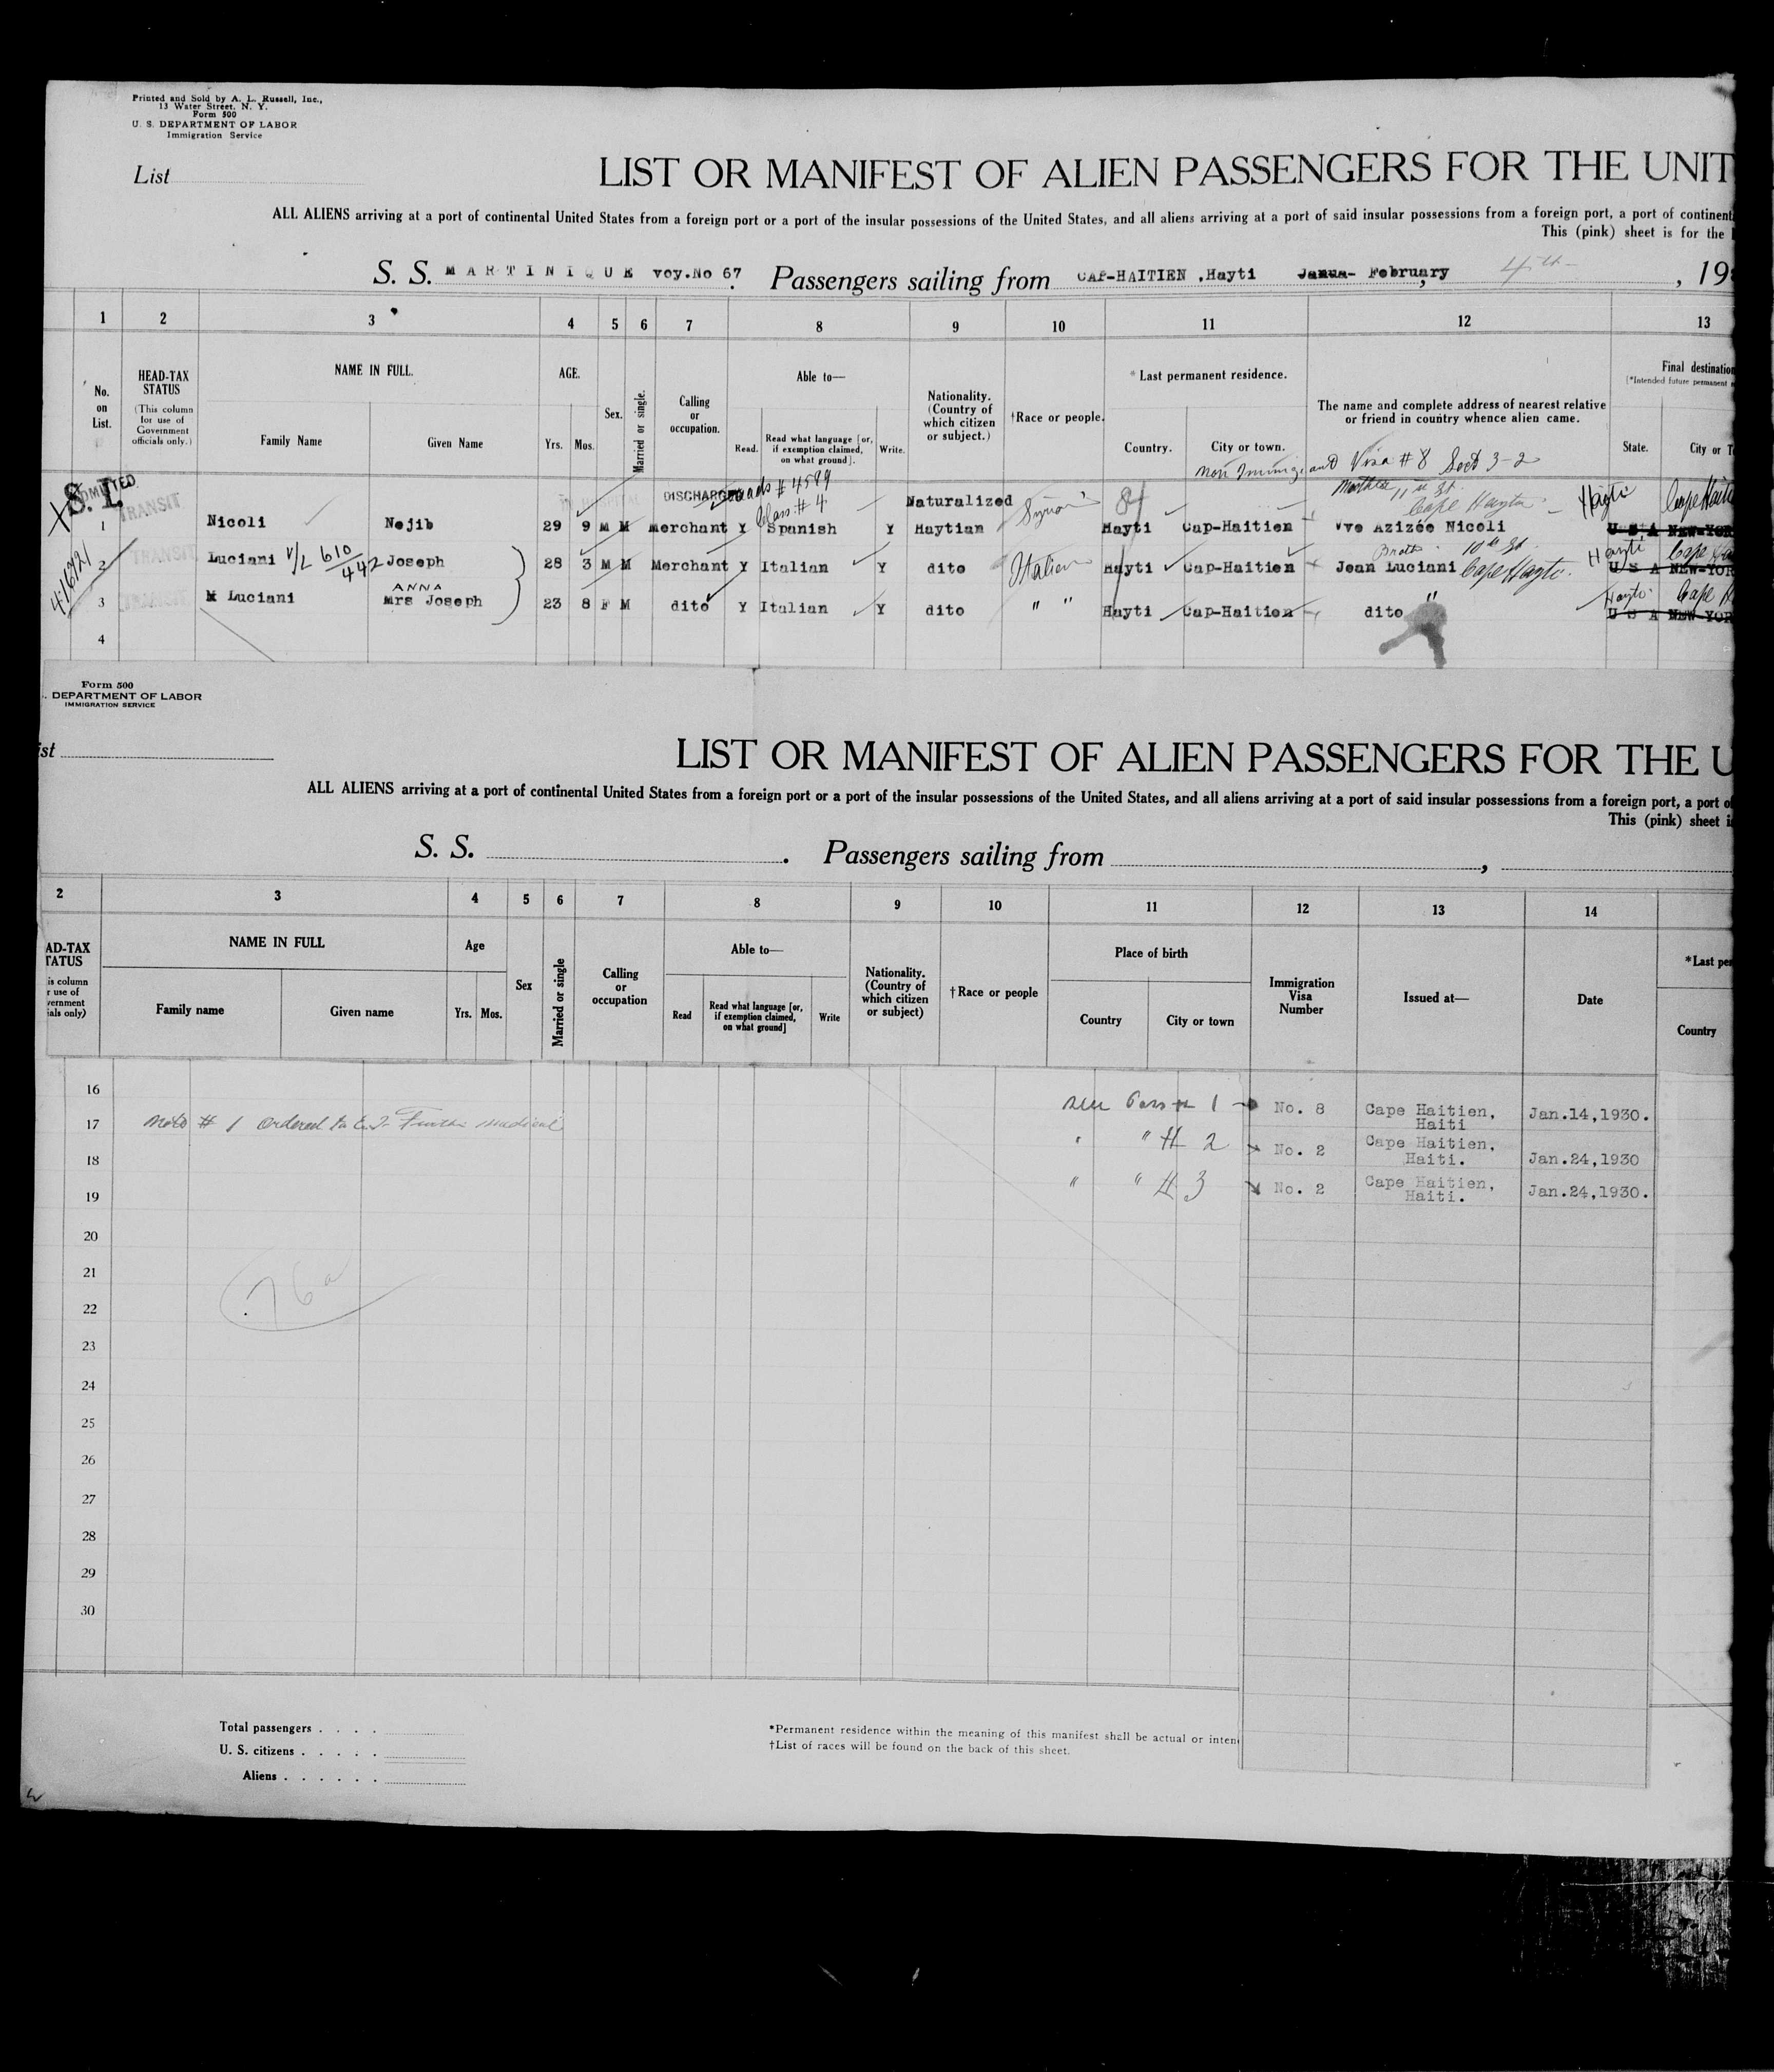 Printed and Sold by A. L. Russell, Inc.,
13 Water Street, N. Y.
Form 500
U. S. DEPARTMENT OF LABOR
Immigration Service
List
LIST OR MANIFEST OF ALIEN PASSENGERS FOR THE UNIT
ALL ALIENS arriving at a port of continental United States from a foreign port or a port of the insular possessions of the United States, and all aliens arriving at a port of said insular possessions from a foreign port, a port of continent
This (pink) sheet is for the
S. S. MARTINIQUE voy.No 67. Passengers sailing from CAP-HAITIEN ,Hayti Janua- February, 4th , 19
1 2 3 4 5 6 7 8 9 10 11 12 13
No. on List.
HEAD-TAX STATUS
(This column for use of Government officials only.)
NAME IN FULL.
Family Name Given Name
AGE.
Yrs. Mos.
Sex.
Married or single.
Calling or occupation.
Able to—
Read. Read what language [or, if exemption claimed, on what ground]. Write.
Nationality. (Country of which citizen or subject.)
†Race or people.
* Last permanent residence.
Country. City or town.
The name and complete address of nearest relative or friend in country whence alien came.
Final destination
[*Intended future permanent
State. City or T
Non Immigrant Visa # 8 Sect 3-2
ADMITTED
S. I.
TRANSIT
IN HOSPITAL
DISCHARGED
# 4589
Class # 4
Mother 11th St.
Cape Hayti
Hayti
1 Nicoli Nejib 29 9 M M Merchant Y Spanish Y Naturalized Haytian Syrian Hayti Cap-Haitien Vve Azizée Nicoli U S A NEW-YOR
TRANSIT
2 Luciani V/L 610/442 Joseph 28 3 M M Merchant Y Italian Y dito Italian Hayti Cap-Haitien Jean Luciani Cape Hayti. U S A NEW-YOR
10th St.
Hayti
TRANSIT
ANNA
3 M Luciani Mrs Joseph 23 8 F M dito Y Italian Y dito " " Hayti Cap-Haitien dito " U S A NEW-YOR
Hayti
4
Form 500
. DEPARTMENT OF LABOR
IMMIGRATION SERVICE
ist
LIST OR MANIFEST OF ALIEN PASSENGERS FOR THE U
ALL ALIENS arriving at a port of continental United States from a foreign port or a port of the insular possessions of the United States, and all aliens arriving at a port of said insular possessions from a foreign port, a port of
This (pink) sheet i
S. S. . Passengers sailing from ,
2 3 4 5 6 7 8 9 10 11 12 13 14
AD-TAX
TATUS
is column
r use of
vernment
ials only)
NAME IN FULL
Family name Given name
Age
Yrs. Mos.
Sex
Married or single
Calling or occupation
Able to—
Read Read what language [or, if exemption claimed, on what ground] Write
Nationality. (Country of which citizen or subject)
†Race or people
Place of birth
Country City or town
Immigration Visa Number
Issued at—
Date
*Last per
Country
16 # 1 No. 8 Cape Haitien, Haiti Jan.14,1930.
17 Note # 1 ordered to E.I. Further medical
" # 2 No. 2 Cape Haitien, Haiti. Jan.24,1930
18
19 " " # 3 No. 2 Cape Haitien, Haiti. Jan.24,1930.
20
21
76a
22
23
24
25
26
27
28
29
30
Total passengers . . . .
U. S. citizens . . . . .
Aliens . . . . . .
*Permanent residence within the meaning of this manifest shall be actual or inten
†List of races will be found on the back of this sheet.